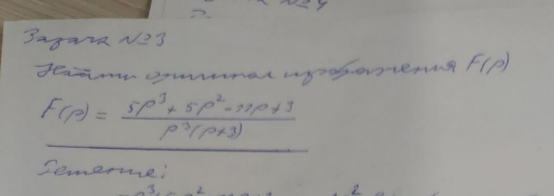 Задача №3
Найти оригинал изображения F(p)
F(p) = 5p³ + 5p² - 11p + 3
p³(p+3)
Решение: